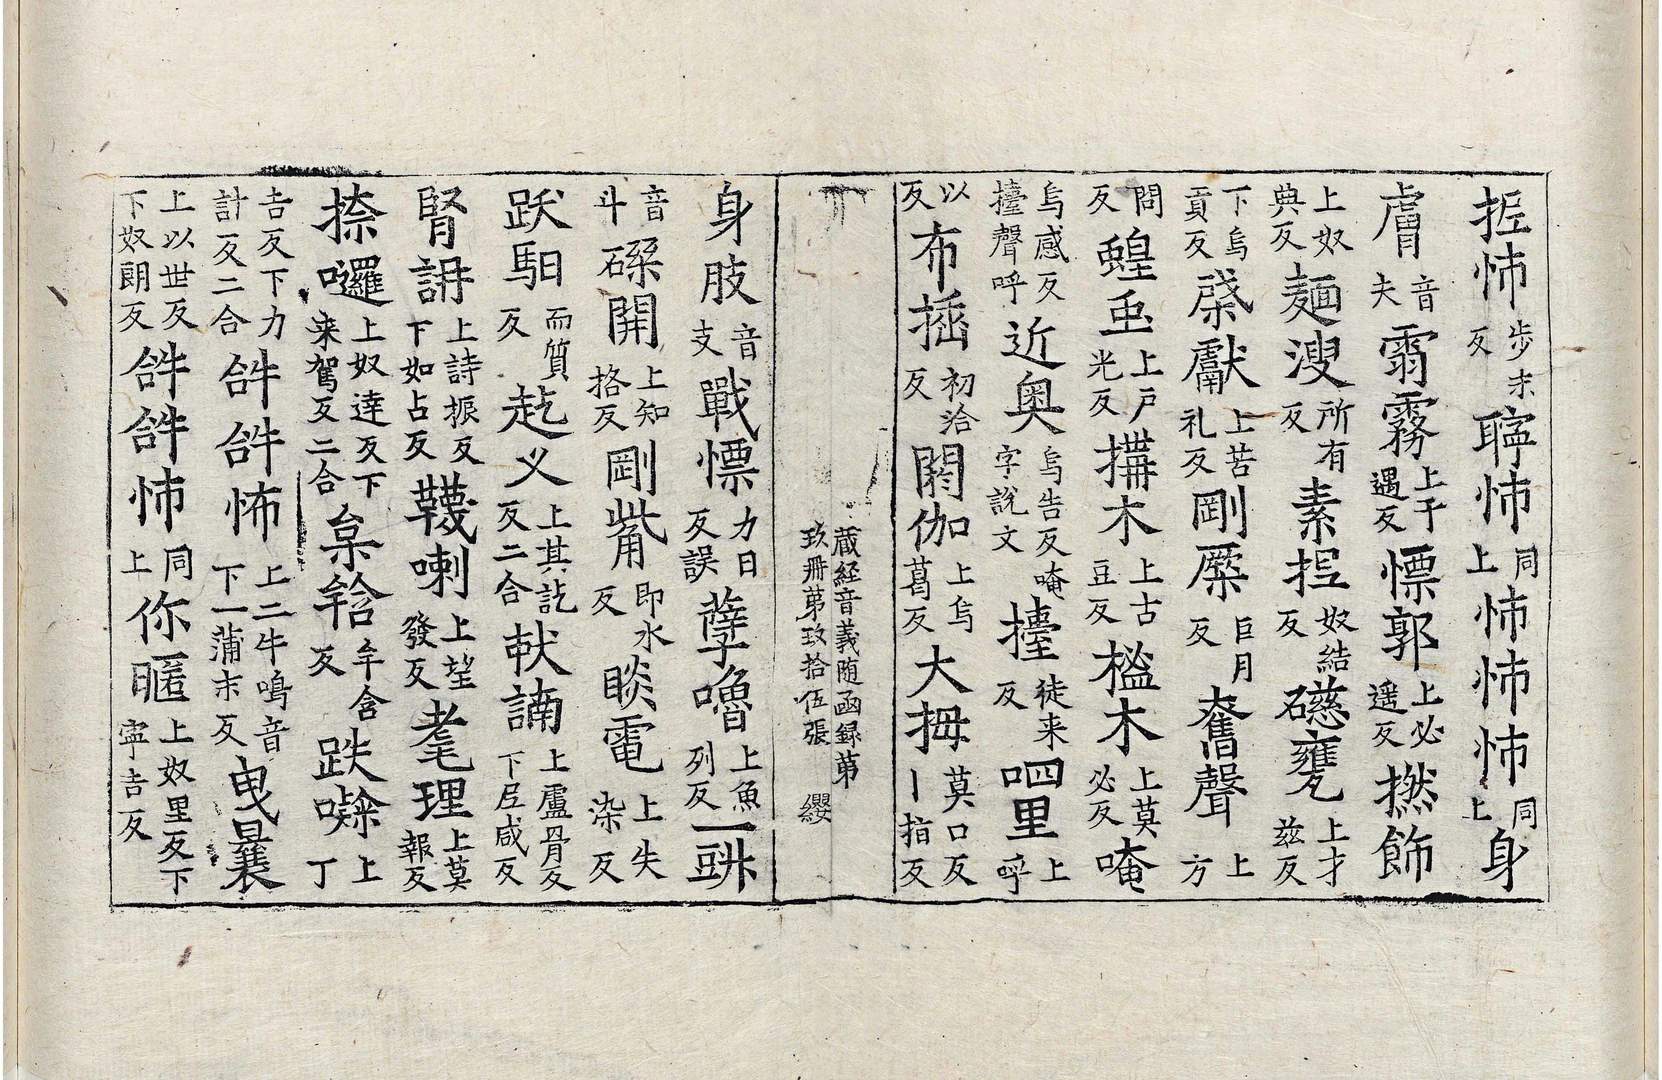 抳㤄步末反䏡㤄同上㤄㤄㤄同上身
膚音夫霧上千遇反慓郭上必遥反撚飾
上奴典反麺溲所有反素揑奴結反礠甕上才兹反
下烏貢反棨獻上苦礼反剛橜巨月反奮聲上方
問反蝗䖝上戸光反搆木上古豆反榓木上莫必反唵
烏感反擡聲呼近奥烏告反唵字說文擡徒来反呬里上呼
以反布插初洽反閼伽上烏葛反大拇莫口反丨指反
藏經音義随函録第
玖冊第玖拾伍張 纓
身肢音支戰慓力日反誤孽嚕上魚列反䶈
音斗磔開上知挌反剛觜即水反睒電上失染反
跃馹而質反趂义上其訖反二合䩠諵上盧骨反下女咸反
腎詽上詩振反下如占反韈喇上望發反耄理上莫報反
捺囉上奴逹反下来駕反二合枲䇞牟含反跌㘑上丁
吉反下力計反二合𤙖𤙖怖上二牛鳴音下一蒲末反曳曩
上以世反下奴朗反𤙖𤙖㤄同上你暱上奴里反下寧吉反